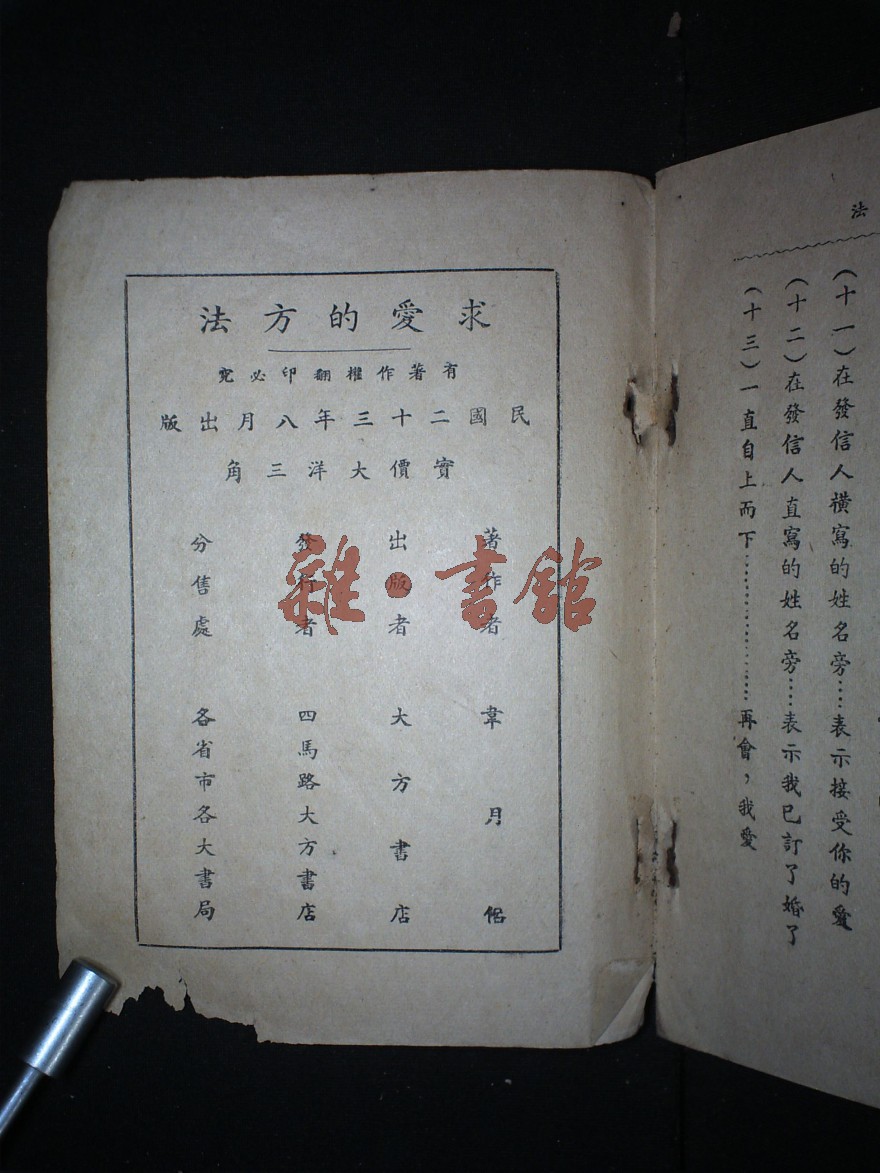 法
(十一)在發信人橫寫的姓名旁……表示接受你的愛
(十二)在發信人直寫的姓名旁……表示我已訂了婚了
(十三)一直自上而下………………再會，我愛
求愛的方法
有著作權翻印必究
民國二十三年八月出版
實價大洋三角
著作者 韋月侶
出版者 大方書店
發行者 四馬路大方書店
分售處 各省市各大書局
雜·書館